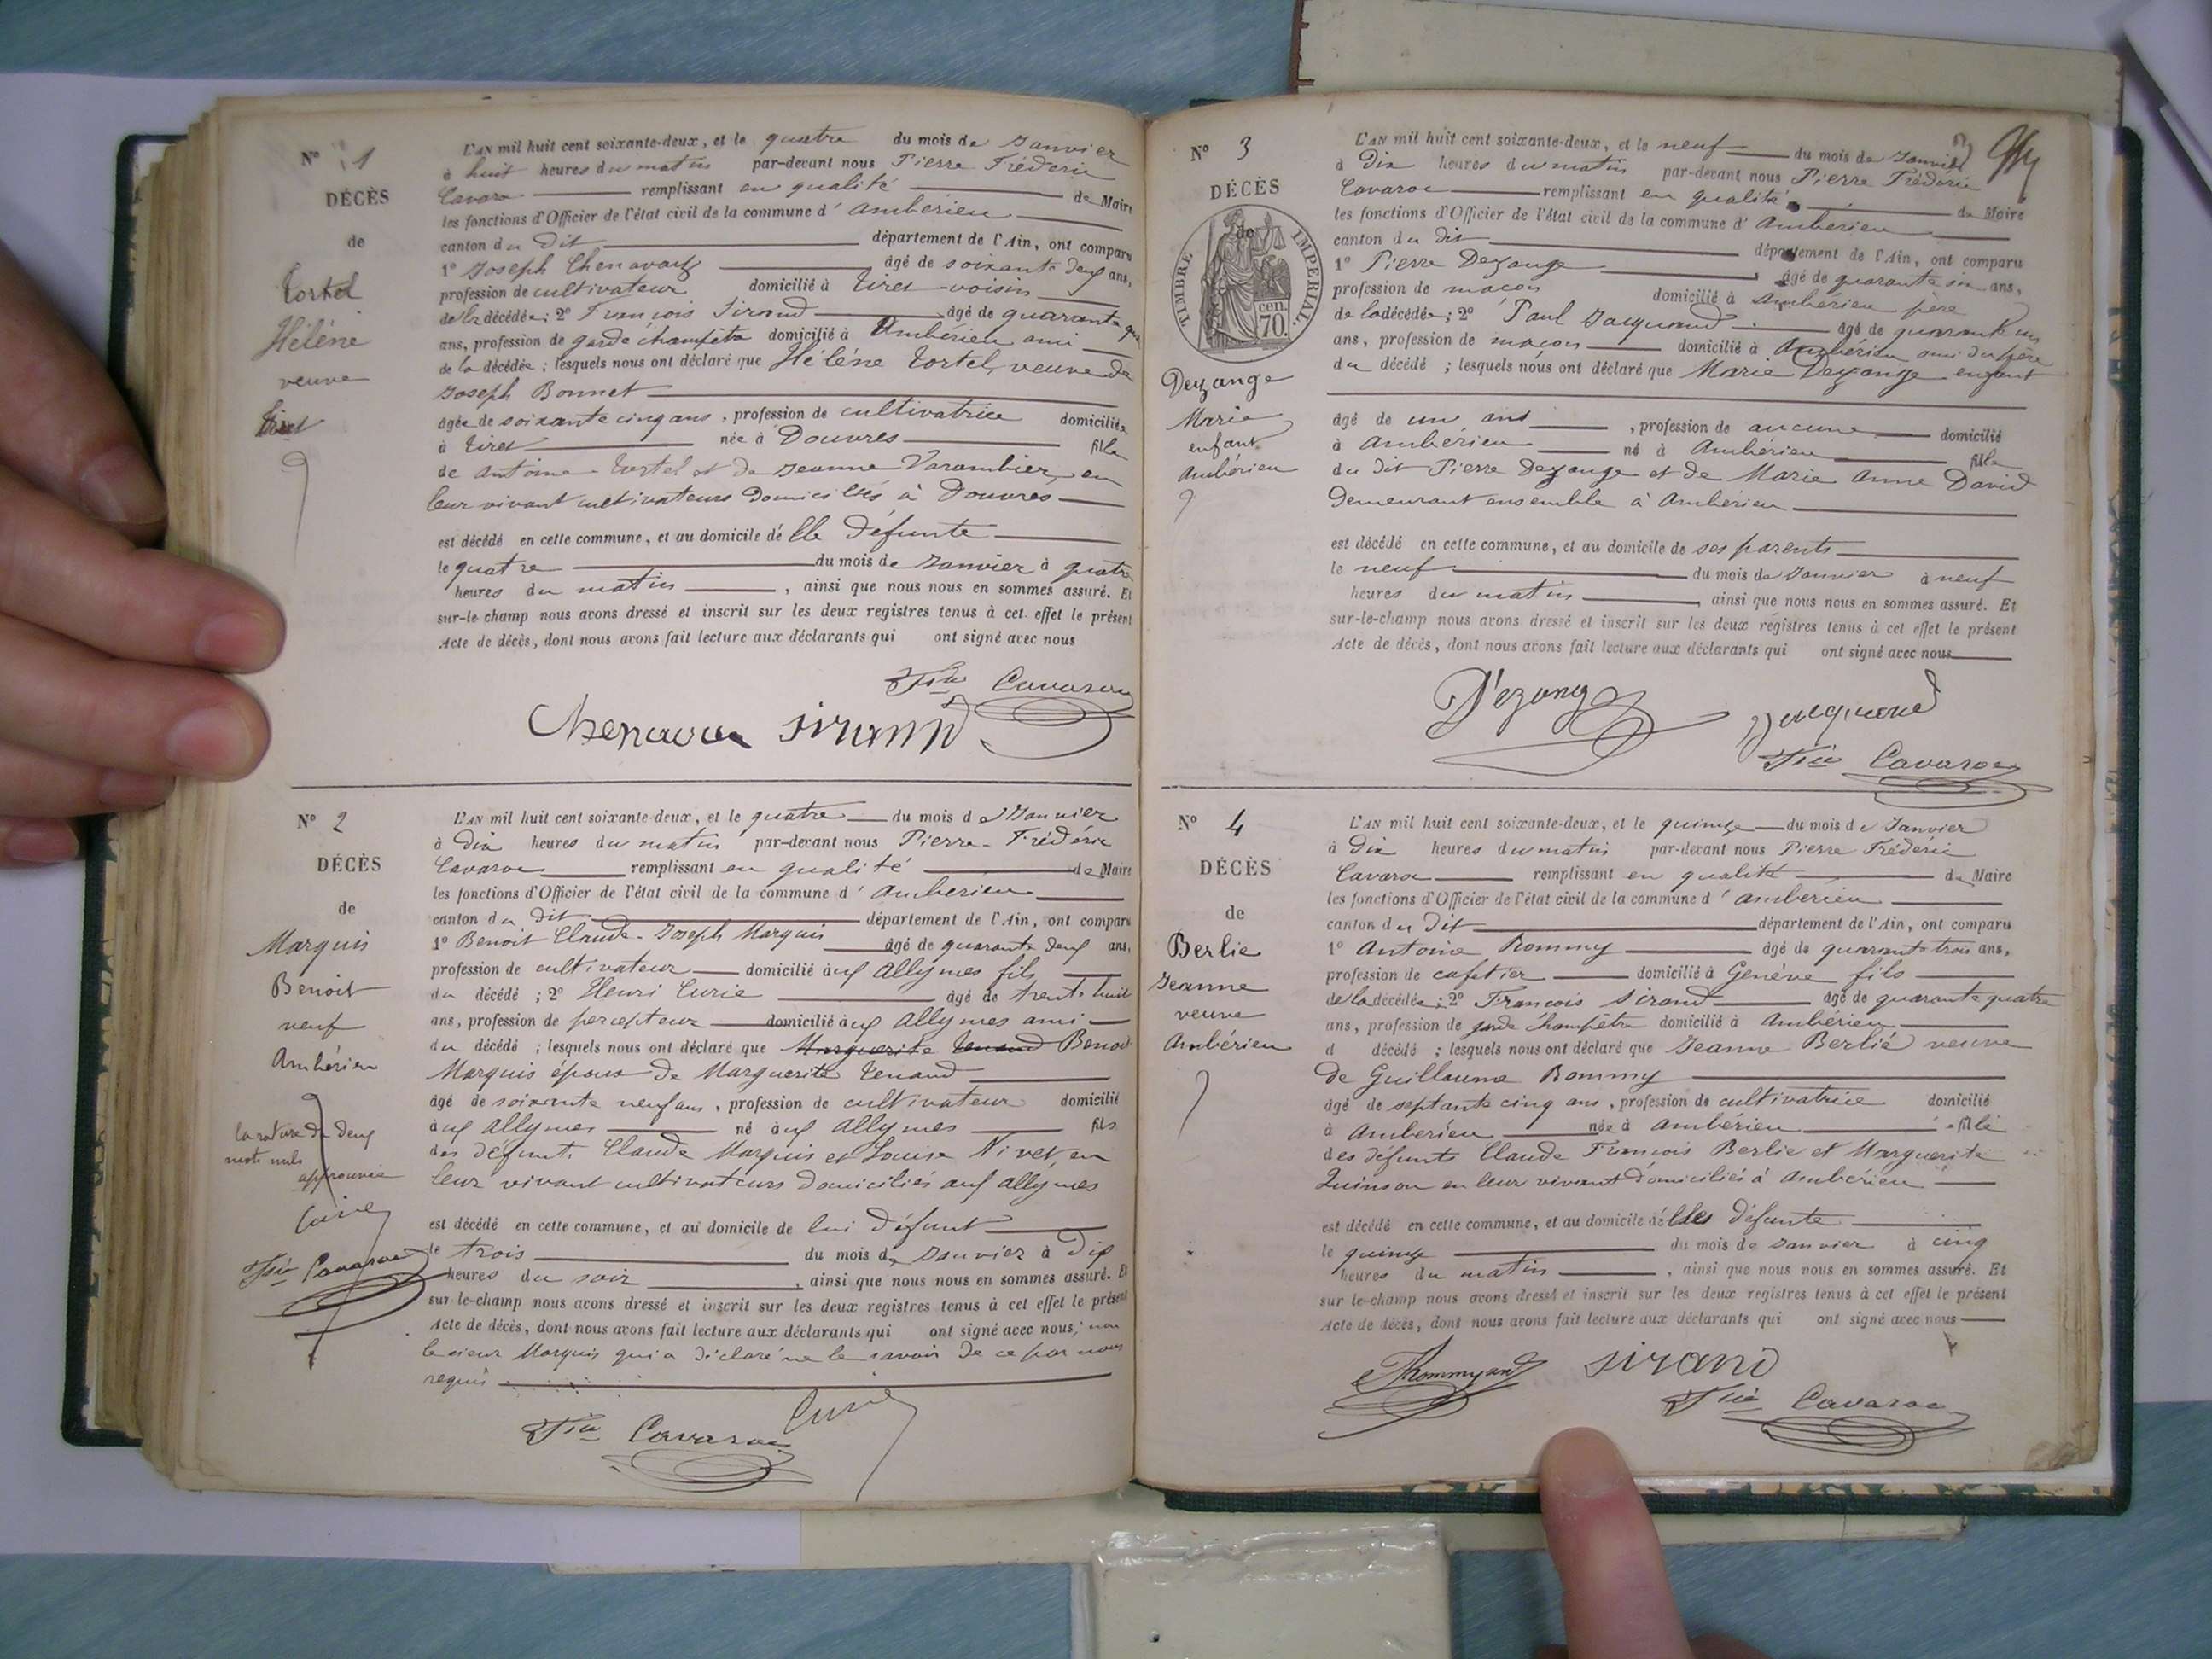 N° 1
DÉCÈS
de
Tortel
Hélène
veuve
Tiret
L'AN mil huit cent soixante-deux, et le quatre du mois de Janvier
à huit heures du matin par-devant nous Pierre Fréderic
Cavaroc remplissant en qualité de Maire
les fonctions d'Officier de l'état civil de la commune d'Ambérieu
canton du dit département de l'Ain, ont comparu
1° Joseph Chenavard âgé de soixante deux ans,
profession de cultivateur domicilié à Tiret voisin
de la décédée ; 2° François Sirand âgé de quarante
ans, profession de garde champêtre domicilié à Ambérieu ami
de la décédée ; lesquels nous ont déclaré que Hélène Tortel, veuve de
Joseph Bonnet
âgée de soixante cinq ans, profession de cultivatrice domiciliée
à Tiret née à Douvres fille
de Antoine Tortel et de Jeanne Varambier, en
leur vivant cultivateurs domiciliés à Douvres
est décédé en cette commune, et au domicile d'elle défunte
le quatre du mois de Janvier à quatre
heures du matin, ainsi que nous nous en sommes assuré. Et
sur-le-champ nous avons dressé et inscrit sur les deux registres tenus à cet effet le présent
Acte de décès, dont nous avons fait lecture aux déclarants qui ont signé avec nous
Fric Cavaroc
Chenavar Sirand
N° 2
DÉCÈS
de
Marquis
Benoit
neuf
Ambérieu
la rature de deux
mots nuls
approuvée
Curie
Fric Cavaroc
L'AN mil huit cent soixante-deux, et le quatre du mois de Janvier
à dix heures du matin par-devant nous Pierre-Fréderic
Cavaroc remplissant en qualité de Maire
les fonctions d'Officier de l'état civil de la commune d'Ambérieu
canton du dit département de l'Ain, ont comparu
1° Benoit Claude-Joseph Marquis âgé de quarante deux ans,
profession de cultivateur domicilié aux Allymes fils
du décédé ; 2° Henri Curie âgé de trente huit
ans, profession de percepteur domicilié aux Allymes ami
du décédé ; lesquels nous ont déclaré que Marguerite Tenand Benoit
Marquis époux de Marguerite Tenand
âgé de soixante neuf ans, profession de cultivateur domicilié
aux Allymes né aux Allymes fils
des défunts Claude Marquis et Louise Nivet, en
leur vivant cultivateurs domiciliés aux allymes
est décédé en cette commune, et au domicile de lui défunt
le trois du mois de Janvier à dix
heures du soir, ainsi que nous nous en sommes assuré. Et
sur-le-champ nous avons dressé et inscrit sur les deux registres tenus à cet effet le présent
Acte de décès, dont nous avons fait lecture aux déclarants qui ont signé avec nous, non
le sieur Marquis qui a déclaré ne le savoir de ce par nous
requis
Fric Cavaroc Curie
N° 3
DÉCÈS
de
TIMBRE IMPERIAL.
70 cen.
Dezange
Marie
enfant
Ambérieu
L'AN mil huit cent soixante-deux, et le neuf du mois de Janvier
à dix heures du matin par-devant nous Pierre Fréderic
Cavaroc remplissant en qualité de Maire
les fonctions d'Officier de l'état civil de la commune d'Ambérieu
canton du dit département de l'Ain, ont comparu
1° Pierre Dezange âgé de quarante six ans,
profession de maçon domicilié à Ambérieu père
de la décédée ; 2° Paul Jacquand âgé de quarante un
ans, profession de maçon domicilié à Ambérieu ami du père
du décédé ; lesquels nous ont déclaré que Marie Dezange enfant
âgé de un ans, profession de aucune domicilié
à Ambérieu né à Ambérieu fille
du dit Pierre Dezange et de Marie Anne David
demeurant ensemble à Ambérieu
est décédé en cette commune, et au domicile de ses parents
le neuf du mois de Janvier à neuf
heures du matin, ainsi que nous nous en sommes assuré. Et
sur-le-champ nous avons dressé et inscrit sur les deux registres tenus à cet effet le présent
Acte de décès, dont nous avons fait lecture aux déclarants qui ont signé avec nous
Dezange Jacquand
Fric Cavaroc
N° 4
DÉCÈS
de
Berlie
Jeanne
veuve
Ambérieu
L'AN mil huit cent soixante-deux, et le quinze du mois de Janvier
à dix heures du matin par-devant nous Pierre Fréderic
Cavaroc remplissant en qualité de Maire
les fonctions d'Officier de l'état civil de la commune d'Ambérieu
canton du dit département de l'Ain, ont comparu
1° Antoine Rommy âgé de quarante trois ans,
profession de cafetier domicilié à Genève fils
de la décédée ; 2° François Sirand âgé de quarante quatre
ans, profession de garde champêtre domicilié à Ambérieu
d décédé ; lesquels nous ont déclaré que Jeanne Berlié veuve
de Guillaume Rommy
âgé de septante cinq ans, profession de cultivatrice domicilié
à Ambérieu née à Ambérieu fille
des défunts Claude François Berlie et Marguerite
Quinson en leur vivant domiciliés à Ambérieu
est décédé en cette commune, et au domicile d'elle défunte
le quinze du mois de Janvier à cinq
heures du matin, ainsi que nous nous en sommes assuré. Et
sur le-champ nous avons dressé et inscrit sur les deux registres tenus à cet effet le présent
Acte de décès, dont nous avons fait lecture aux déclarants qui ont signé avec nous
Sirand
Fric Cavaroc